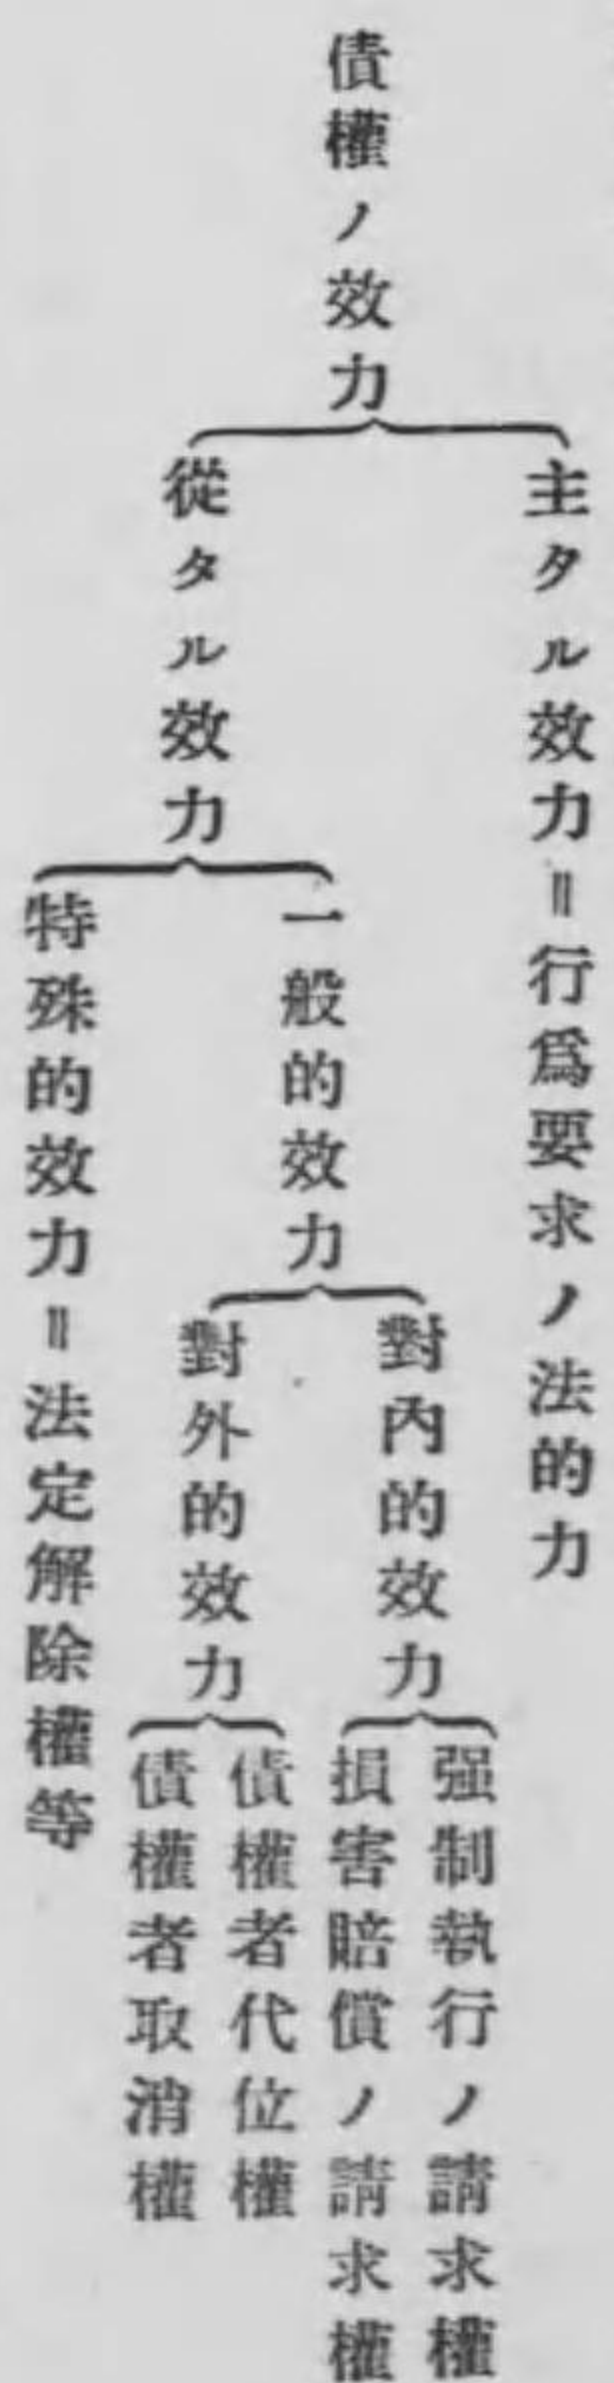 債權ノ效力
主タル效力=行爲要求ノ法的力
從タル效力
一般的效力
對內的效力
强制執行ノ請求權
損害賠償ノ請求權
對外的效力
債權者代位權
債權者取消權
特殊的效力=法定解除權等